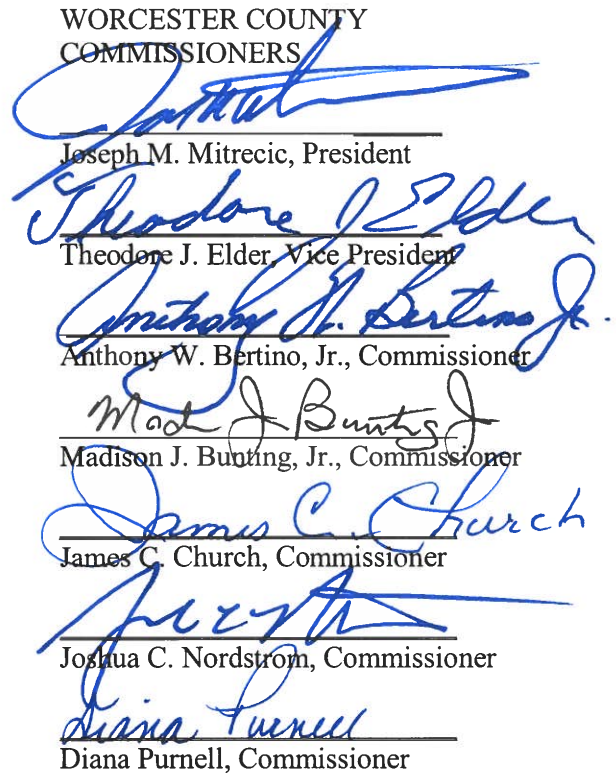 WORCESTER COUNTY
COMMISSIONERS
Joseph M. Mitrecic, President
Theodore J Elder
Theodore J. Elder, Vice President
Anthony W. Bertino Jr.
Anthony W. Bertino, Jr., Commissioner
Madison J Bunting Jr
Madison J. Bunting, Jr., Commissioner
James C. Church
James C. Church, Commissioner
Joshua C. Nordstrom, Commissioner
Diana Purnell
Diana Purnell, Commissioner